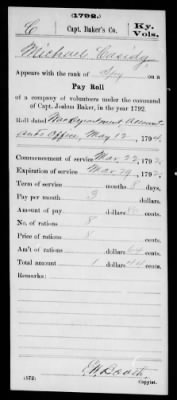 (1792.)
C | Capt. Baker's Co. | Ky. Vols.
Michael Casidy
Appears with the rank of Spy on a
Pay Roll
of a company of volunteers under the command
of Capt. Joshua Baker, in the year 1792.
Roll dated War Department, Account-
ants Office, May 12, 1794.
Commencement of service Mar. 22, 1792.
Expiration of service Mar. 29, 1792.
Term of service months 8 days.
Pay per month 3 dollars cents.
Amount of pay dollars 80 cents.
No. of rations 8
Price of rations 8 cents.
Am't of rations dollars 64 cents.
Total amount 1 dollars 44 cents.
Remarks:
(572) Copyist.